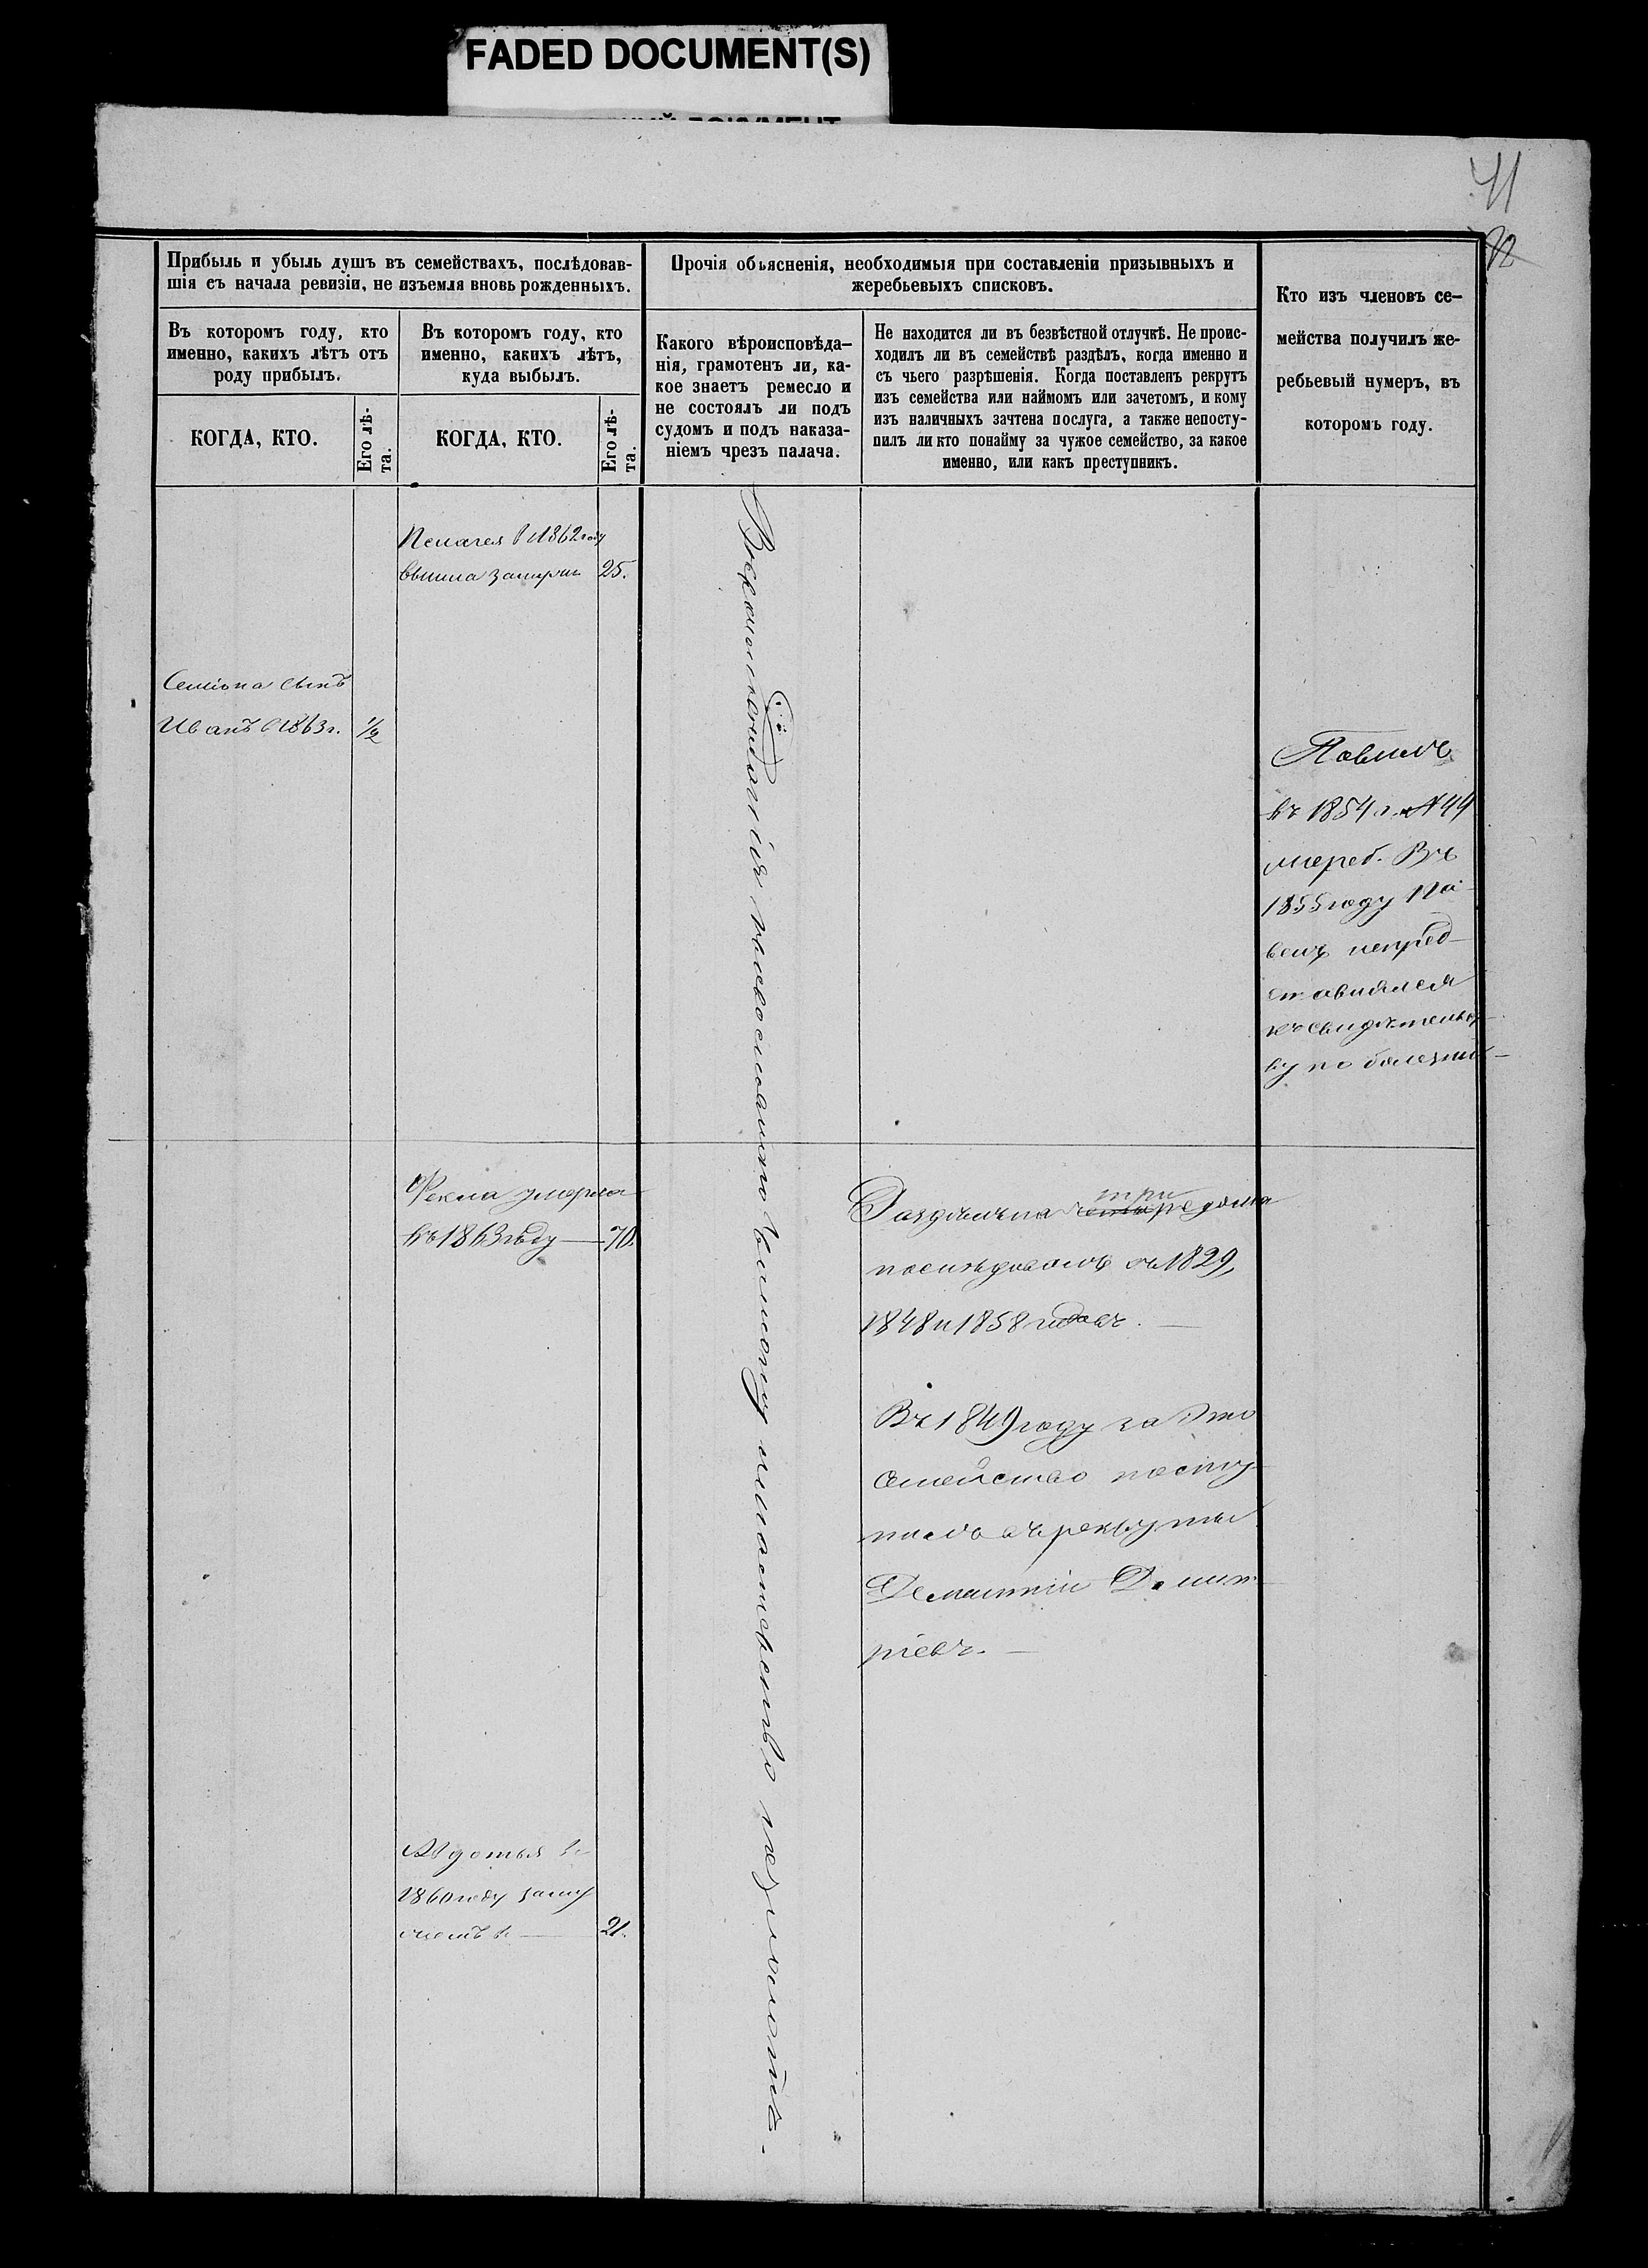 FADED DOCUMENT(S)
41
Прибыль и убыль душъ въ семействахъ, послѣдовав-
шія съ начала ревизіи, не изъемля вновь рожденныхъ.
Въ которомъ году, кто
именно, какихъ лѣтъ отъ
роду прибылъ.
Въ которомъ году, кто
именно, какихъ лѣтъ,
куда выбылъ.
КОГДА, КТО.
Его лѣ-
та.
КОГДА, КТО.
Его лѣ-
та.
Прочія объясненія, необходимыя при составленіи призывныхъ и
жеребьевыхъ списковъ.
Какого вѣроисповѣда-
нія, грамотенъ ли, ка-
кое знаетъ ремесло и
не состоялъ ли подъ
судомъ и подъ наказа-
ніемъ чрезъ палача.
Не находится ли въ безвѣстной отлучкѣ. Не проис-
ходилъ ли въ семействѣ раздѣлъ, когда именно и
съ чьего разрѣшенія. Когда поставленъ рекрутъ
изъ семейства или наймомъ или зачетомъ, и кому
изъ наличныхъ зачтена послуга, а также непосту-
пилъ ли кто понайму за чужое семейство, за какое
именно, или какъ преступникъ.
Кто изъ членовъ се-
мейства получилъ же-
ребьевый нумеръ, въ
которомъ году.
Пелагея въ 1862 году
вышла замужъ 25.
Семіона сынъ
Иванъ в 1863 г. 1/2
Павелъ
въ 1854 г. № 44
жереб. Въ
1855 году Па-
велъ непред-
ставлялся
къ свидѣтельст-
ву по болезни
Фекла умерла
въ 1863 году 70.
Авдотья въ
1860 году заму
21.
Вѣроисповѣданія православнаго
Раздѣлъ на три дома
последовалъ въ 1829,
1848 и 1858 годахъ.
Въ 1849 году за это
семейство посту-
пилъ въ рекруты
Дементій Дмит-
ріевъ.